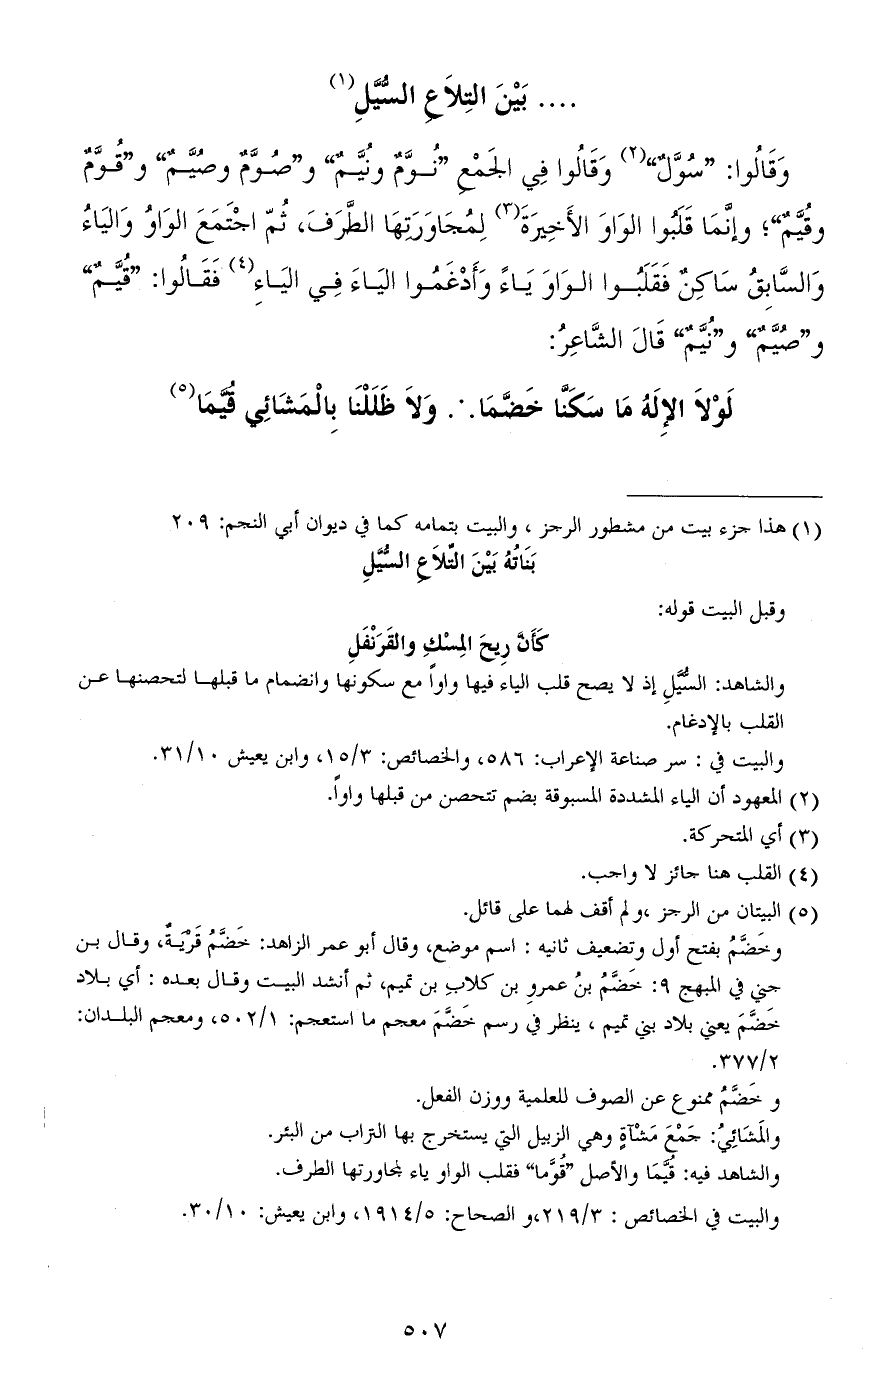 .... بَيْنَ التِلاَعِ السُّيَّلِ(١)
وَقَالُوا: ”سُوَّلٌ“(٢) وَقَالُوا فِي الجَمْعِ ”نُوَّمٌ ونُيَّمٌ“ و”صُوَّمٌ وصُيَّمٌ“ و”قُوَّمٌ
وقُيَّمٌ“؛ وإنَّمَا قَلَبُوا الوَاوَ الأَخِيرَةَ(٣) لِمُجَاوَرَتِهَا الطَّرَفَ، ثُمّ اجْتَمَعَ الوَاوُ وَاليَاءُ
وَالسَّابِقُ سَاكِنٌ فَقَلَبُوا الوَاوَ يَاءً وَأَدْغَمُوا اليَاءَ فِي اليَاءِ(٤) فَقَالُوا: ”قُيَّمٌ“
و”صُيَّمٌ“ و”نُيَّمٌ“ قَالَ الشَّاعِرُ:
لَوْلاَ الإِلَهُ مَا سَكَنَّا خَضَّمَا .·. وَلاَ ظَلَلْنَا بِالْمَشَائِي قُيَّمَا(٥)
(١) هذا جزء بيت من مشطور الرجز ، والبيت بتمامه كما في ديوان أبي النجم: ٢٠٩
بَنَاتُهُ بَيْنَ التِّلاَعِ السُّيَّلِ
وقبل البيت قوله:
كَأَنَّ رِيحَ المِسْكِ والقَرَنْفَلِ
والشاهد: السُّيَّلِ إذ لا يصح قلب الياء فيها واواً مع سكونها وانضمام ما قبلها لتحصنها عن
القلب بالإدغام.
والبيت في : سر صناعة الإعراب: ٥٨٦، والخصائص: ١٥/٣، وابن يعيش ٣١/١٠.
(٢) المعهود أن الياء المشددة المسبوقة بضم تتحصن من قبلها واواً.
(٣) أي المتحركة.
(٤) القلب هنا جائز لا واجب.
(٥) البيتان من الرجز ،ولم أقف لهما على قائل.
وخَضَّمُ بفتح أول وتضعيف ثانيه : اسم موضع، وقال أبو عمر الزاهد: خَضَّمُ قَرْيَةٌ، وقال بن
جني في المبهج ٩: خَضَّمُ بنُ عمرو بن كلاب بن تميم، ثم أنشد البيت وقال بعده : أي بلاد
خَضَّمَ يعني بلاد بني تميم ، ينظر في رسم خَضَّمَ معجم ما استعجم: ٥٠٢/١، ومعجم البلدان:
٣٧٧/٢.
و خَضَّمُ ممنوع عن الصوف للعلمية ووزن الفعل.
والمَشَائِيُ: جَمْعَ مَشْآةٍ وهي الزبيل التي يستخرج بها التراب من البئر.
والشاهد فيه: قُيَّمَا والأصل ”قُوَّما“ فقلب الواو ياء لمجاورتها الطرف.
والبيت في الخصائص : ٢١٩/٣،و الصحاح: ١٩١٤/٥، وابن يعيش: ٣٠/١٠.
٥٠٧